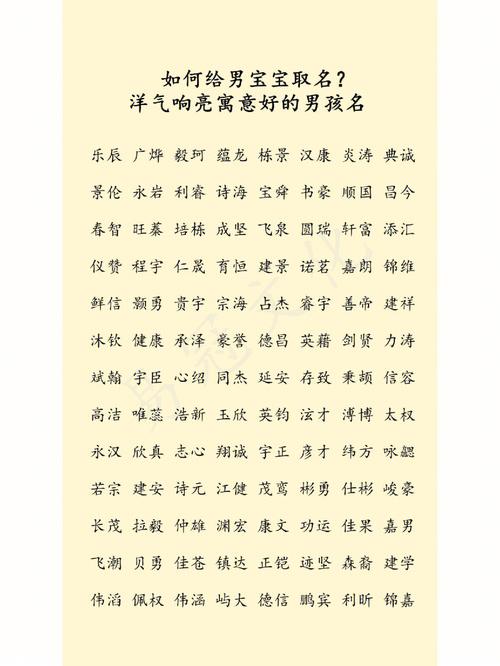 如何给男宝宝取名?
洋气响亮寓意好的男孩名
乐辰 广烨 毅珂 蕴龙 栋景 汉康 炎涛 典诚
景伦 永岩 利睿 诗海 宝舜 书豪 顺国 昌今
春智 旺蓁 培栋 成坚 飞泉 圆瑞 轩富 添汇
仪赞 程宇 仁晟 育恒 建景 诺茗 嘉朗 锦维
鲜信 颢勇 贵宇 宗海 占杰 睿宇 善帝 建祥
沐钦 健康 承泽 豪誉 德昌 英藉 剑贤 力涛
斌翰 宇臣 心绍 同杰 延安 存致 秉颉 信容
高洁 唯蕊 浩新 玉欣 英钧 泫才 溥博 太权
永汉 欣真 志心 翔诚 宇正 彦才 纬方 咏勰
若宗 建安 诗元 江健 茂鸾 彬勇 仕彬 峻豪
长茂 拉毅 仲雄 渊宏 康文 功运 佳果 嘉男
飞潮 贝勇 佳苍 镇达 正铠 迹坚 森裔 建学
伟滔 佩权 伟涵 屿大 德信 鹏宾 利昕 锦嘉
易冠文化